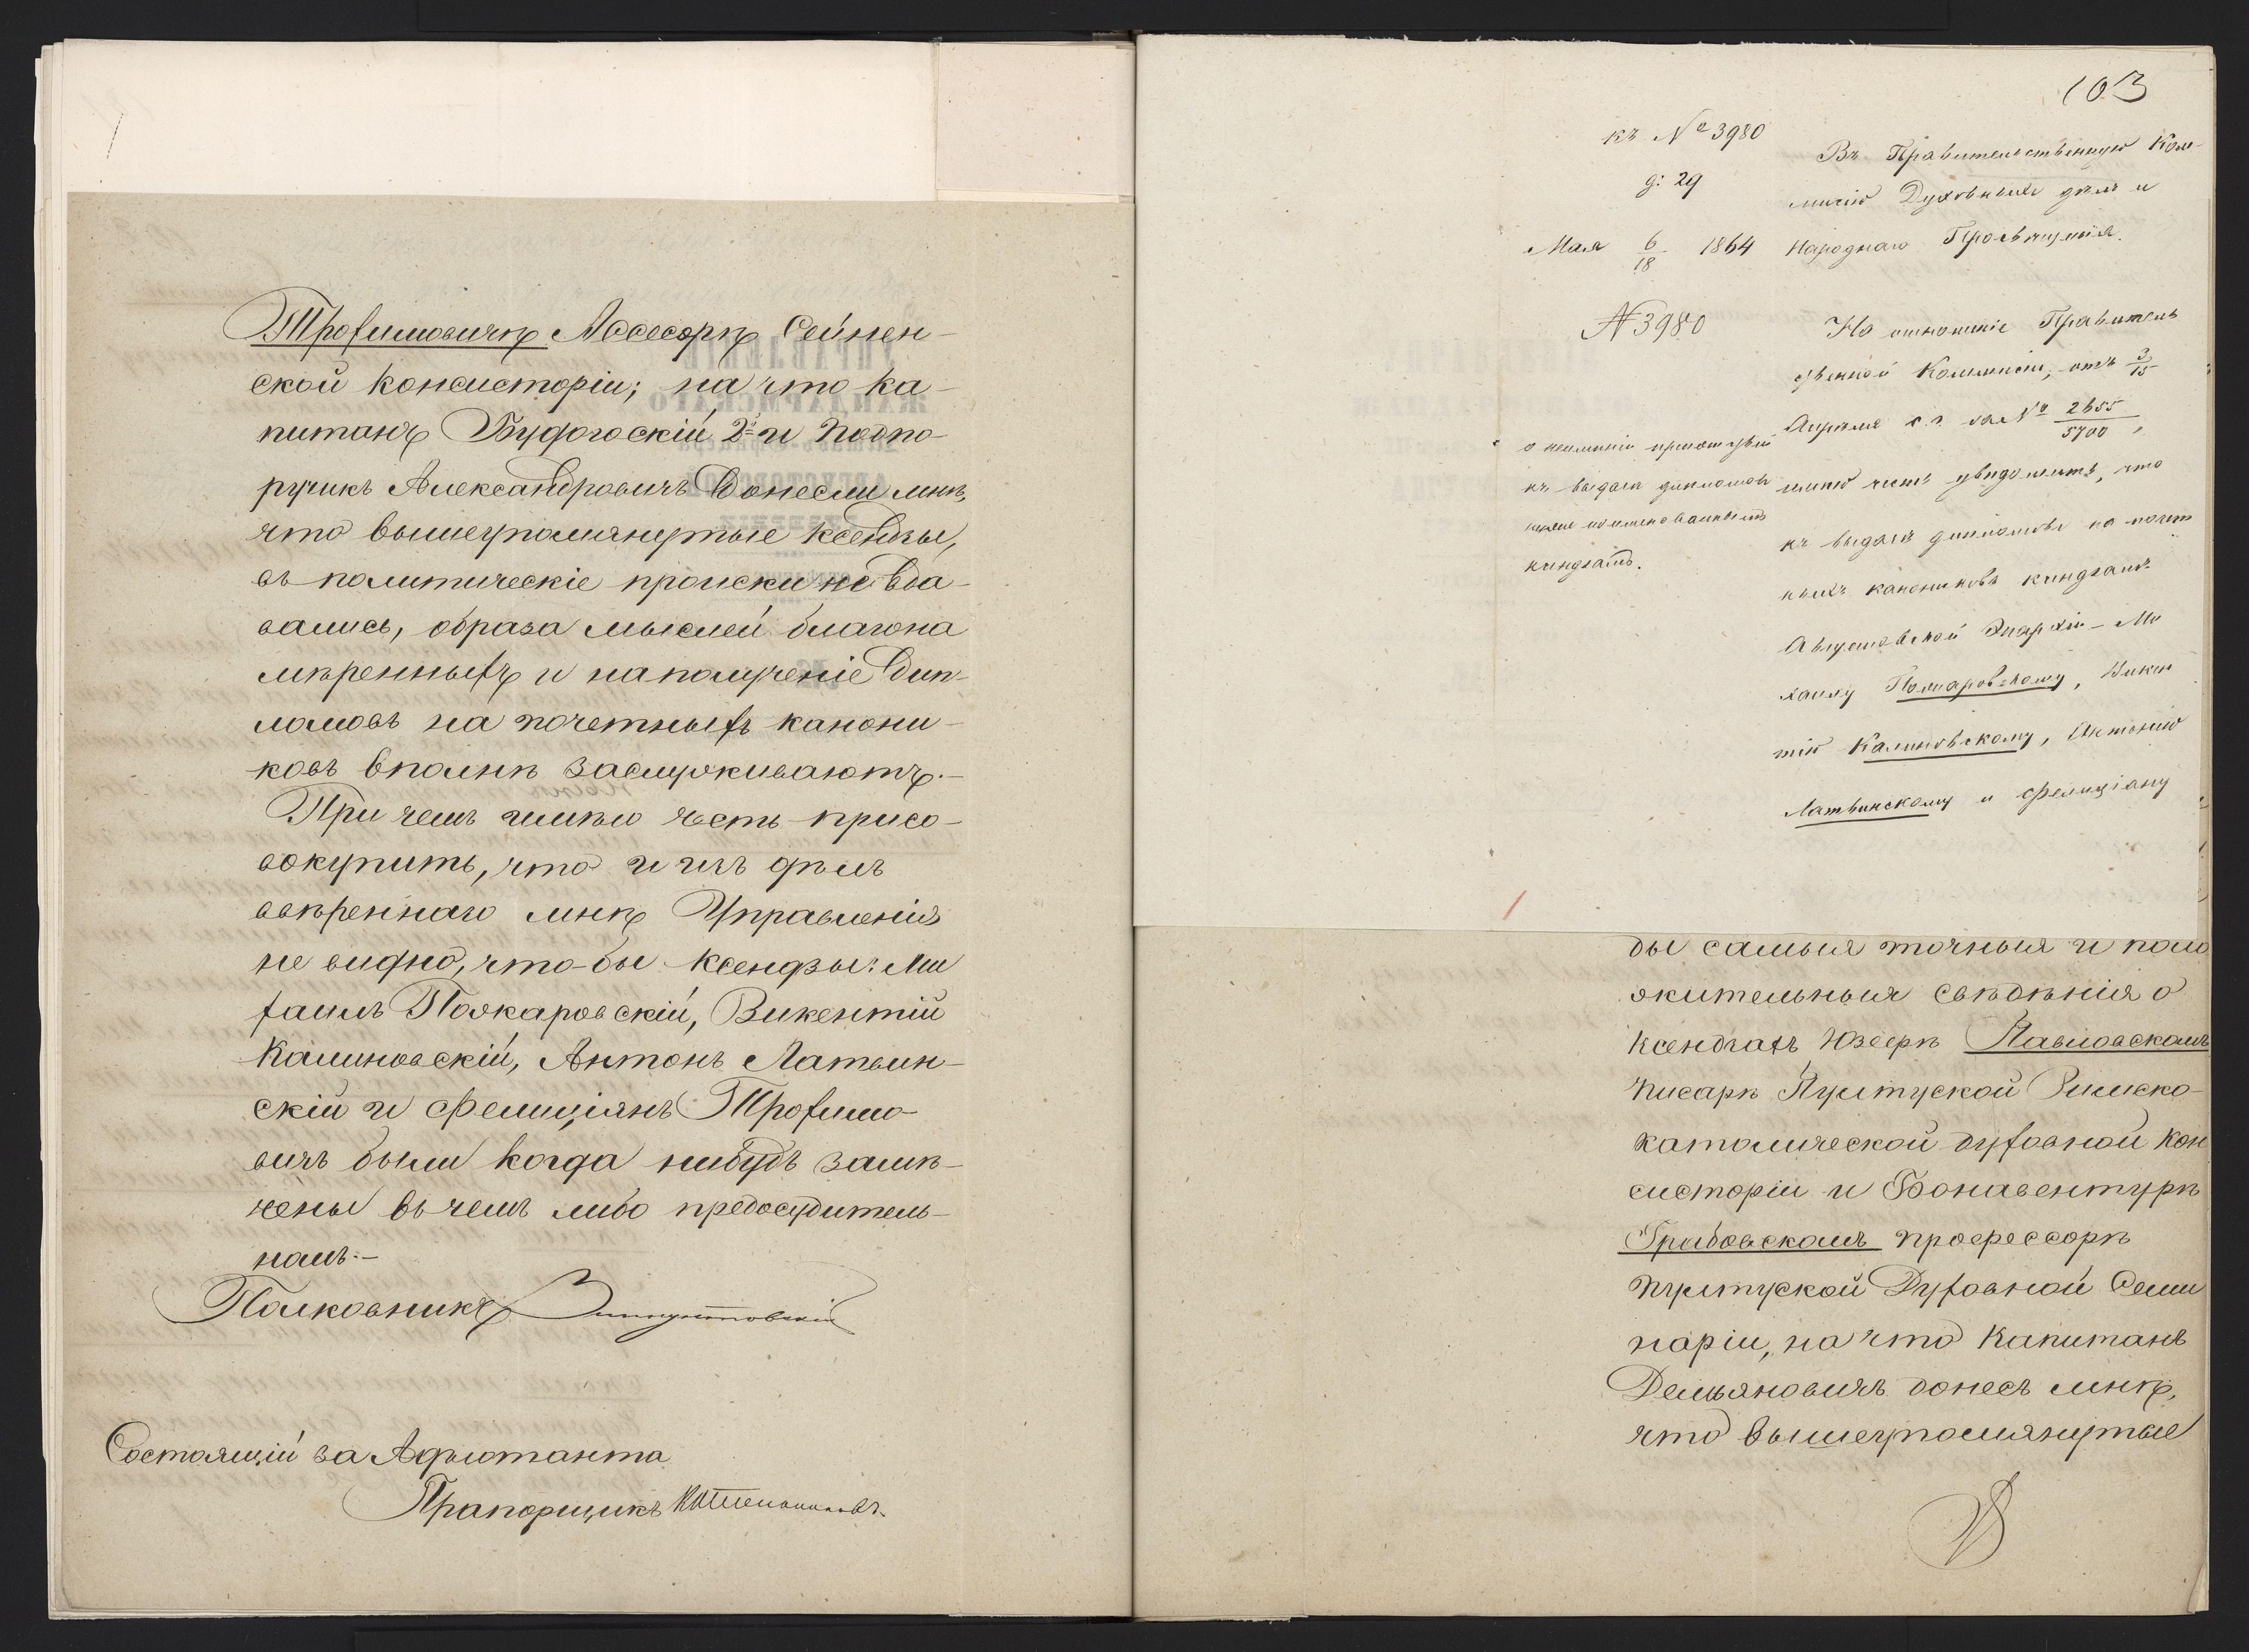 Трохимовичѣ Ассесорѣ Сейнен-
ской консисторіи; на что ка-
питанъ Будогоскій 2й и Подпо-
ручикъ Александровичъ донесли мнѣ,
что вышеупомянутые ксендзы,
въ политическіе происки не вда-
вались, образа мыслей благона
мѣренныхъ и на полученіе дип-
ломовъ на почетныхъ канони-
ковъ вполнѣ заслуживаютъ.-
При чемъ имѣю честь присо-
вокупить, что и изъ дѣлъ
ввѣреннаго мнѣ Управленія
не видно, что-бы ксендзы: Ми
хаилъ Пожаровскій, Викентій
Калиновскій, Антонъ Латвин-
скій и Фелиціянъ Трохимо-
вичъ были когда нибудь замѣ-
чены въ чемъ либо предосудитель-
номъ.-
Полковникъ
Состоящій за Адъютанта
Прапорщикъ
103
къ № 3980
д: 29
Мая 6/18 1864
№ 3980
о неимѣніи препятствій
къ выдачѣ дипломовъ
поименованнымъ
ксендзамъ.
Въ Правительственную Ком-
мисію Духовныхъ дѣлъ и
Народнаго Просвѣщенія.
На отношеніе Правитель
ственной Коммисіи, отъ 3/15
Апрѣля с.г. за № 2655/5700,
имѣю честь увѣдомить, что
къ выдачѣ дипломовъ на почет
ныхъ канониковъ ксендзамъ
Августовской Епархіи - Ми
хаилу Пожаровскому, Викен
тію Калиновскому, Антонію
Латвинскому и Фелиціану
бы самыя точныя и поло
жительныя свѣдѣнія о
Ксендзахъ Юзефѣ Павловскомъ
Писарѣ Пултуской Римско-
католической духовной Кон
систоріи и Бонавентурѣ
Грабовскомъ профессорѣ
Пултуской Духовной Семи
наріи, на что Капитанъ
Демьяновичъ донесъ мнѣ,
что вышеупомянутые